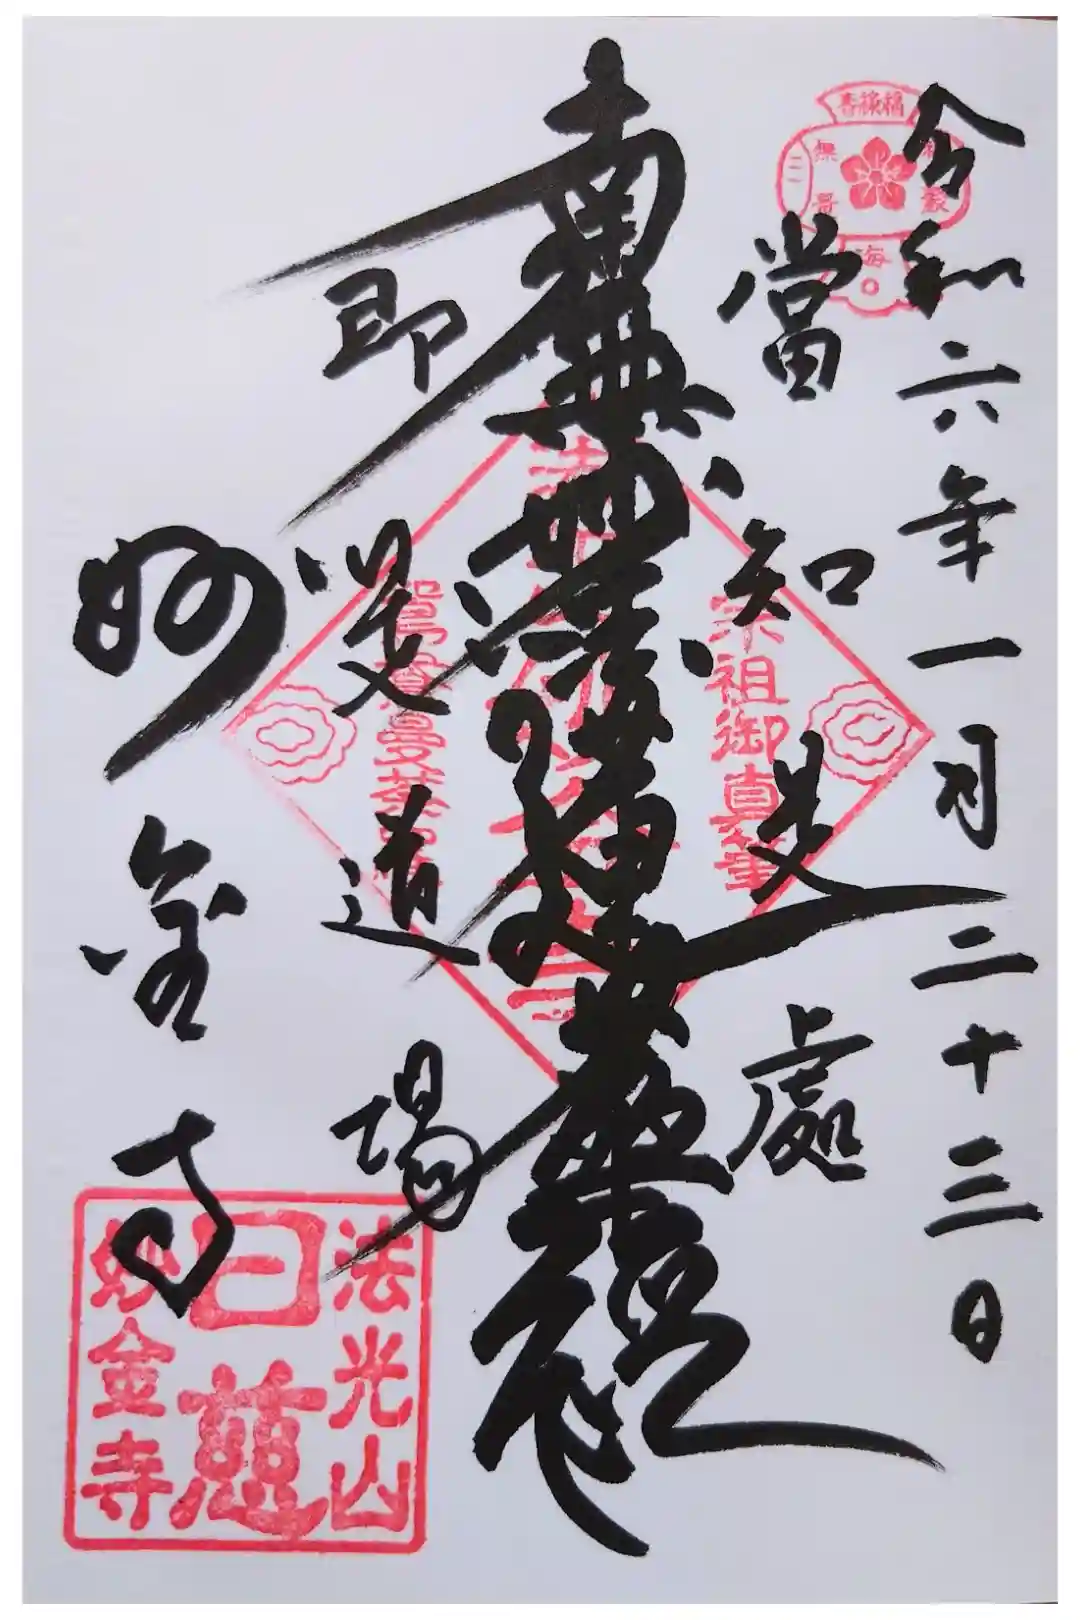 令和六年一月二十三日
當知是處
南無妙法蓮華経
即是道場
妙金寺
福禄寿
宗祖御真筆
法光山
日慈
妙金寺